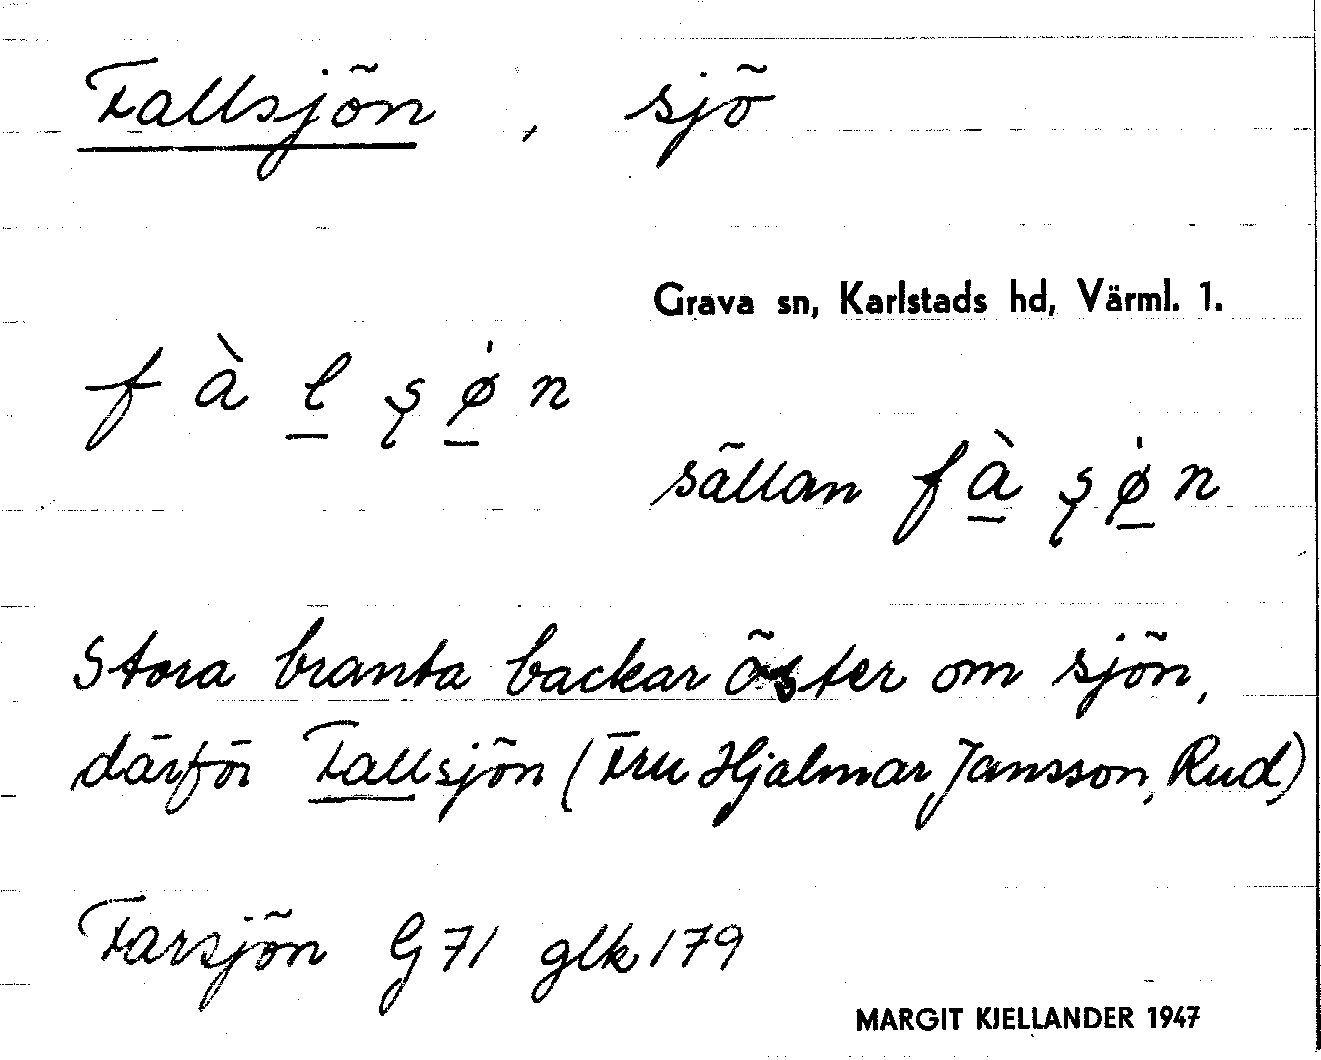 Fallsjön, sjö
Grava sn, Karlstads hd, Värml. 1.
f à l ş ø̍ n
sällan f à ş ø̍ n
Stora branta backar öster om sjön,
därför Fallsjön (Fru Hjalmar Jansson, Rud)
Farsjön G 71 glk 179
MARGIT KJELLANDER 1947